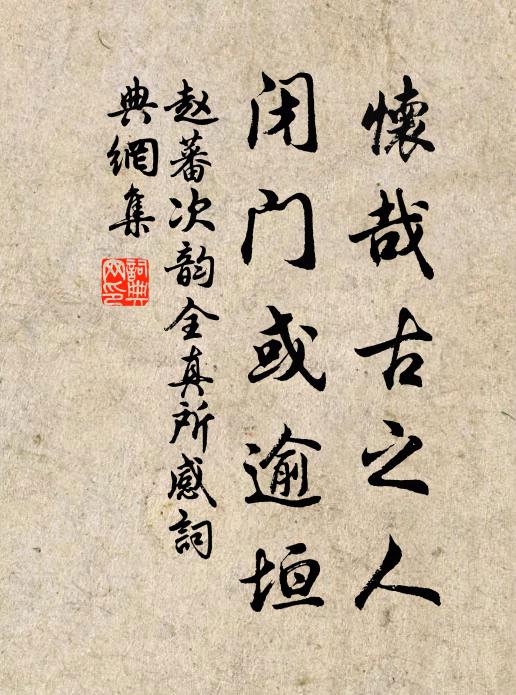 懷哉古之人
闭门或逾垣
赵蕃次韵全真所感詞
典網集
詞典
网印